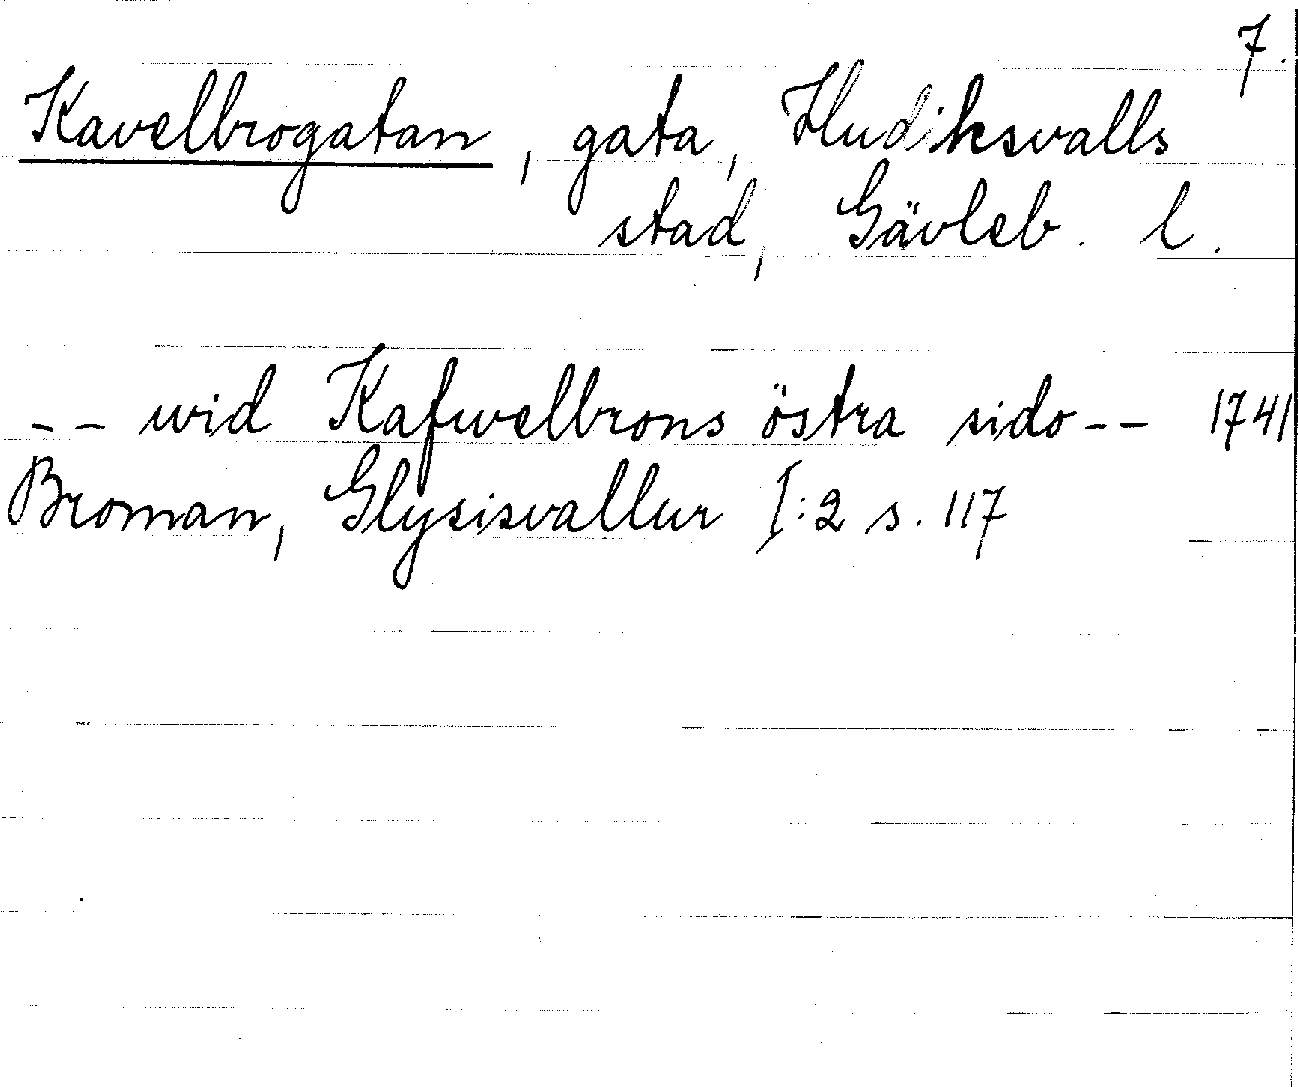 7.
Kavelbrogatan, gata, Hudiksvalls
stad, Gävleb. l.
-- wid Kafwelbrons östra sido -- 1741
Broman, Glysisvallur I:2 s. 117